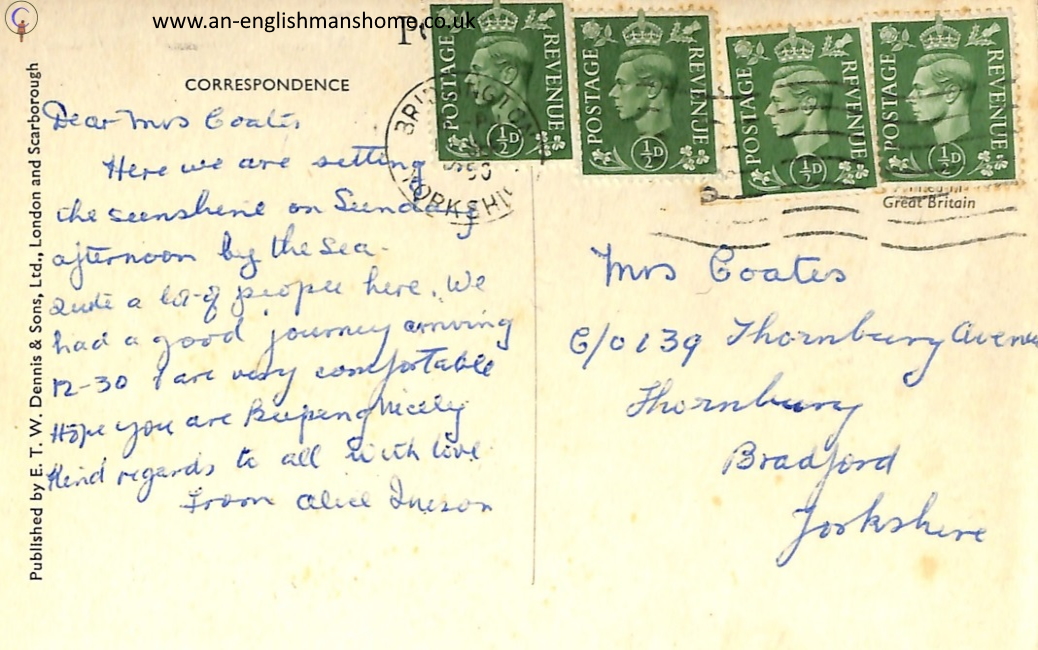 www.an-englishmanshome.co.uk
CORRESPONDENCE
Dear Mrs Coates
Here we are setting
the sunshine on Sunday
afternoon by the sea.
Quite a lot of people here. We
had a good journey arriving
12-30 & are very comfortable
Hope you are keeping nicely
Kind regards to all with love
from Alice
Published by E. T. W. Dennis & Sons, Ltd., London and Scarborough
POSTAGE REVENUE ½D
POSTAGE REVENUE ½D
POSTAGE REVENUE ½D
POSTAGE REVENUE ½D
BRIDLINGTON
YORKSHI
Great Britain
Mrs Coates
C/o 139 Thornbury Avenu
Thornbury
Bradford
Yorkshire